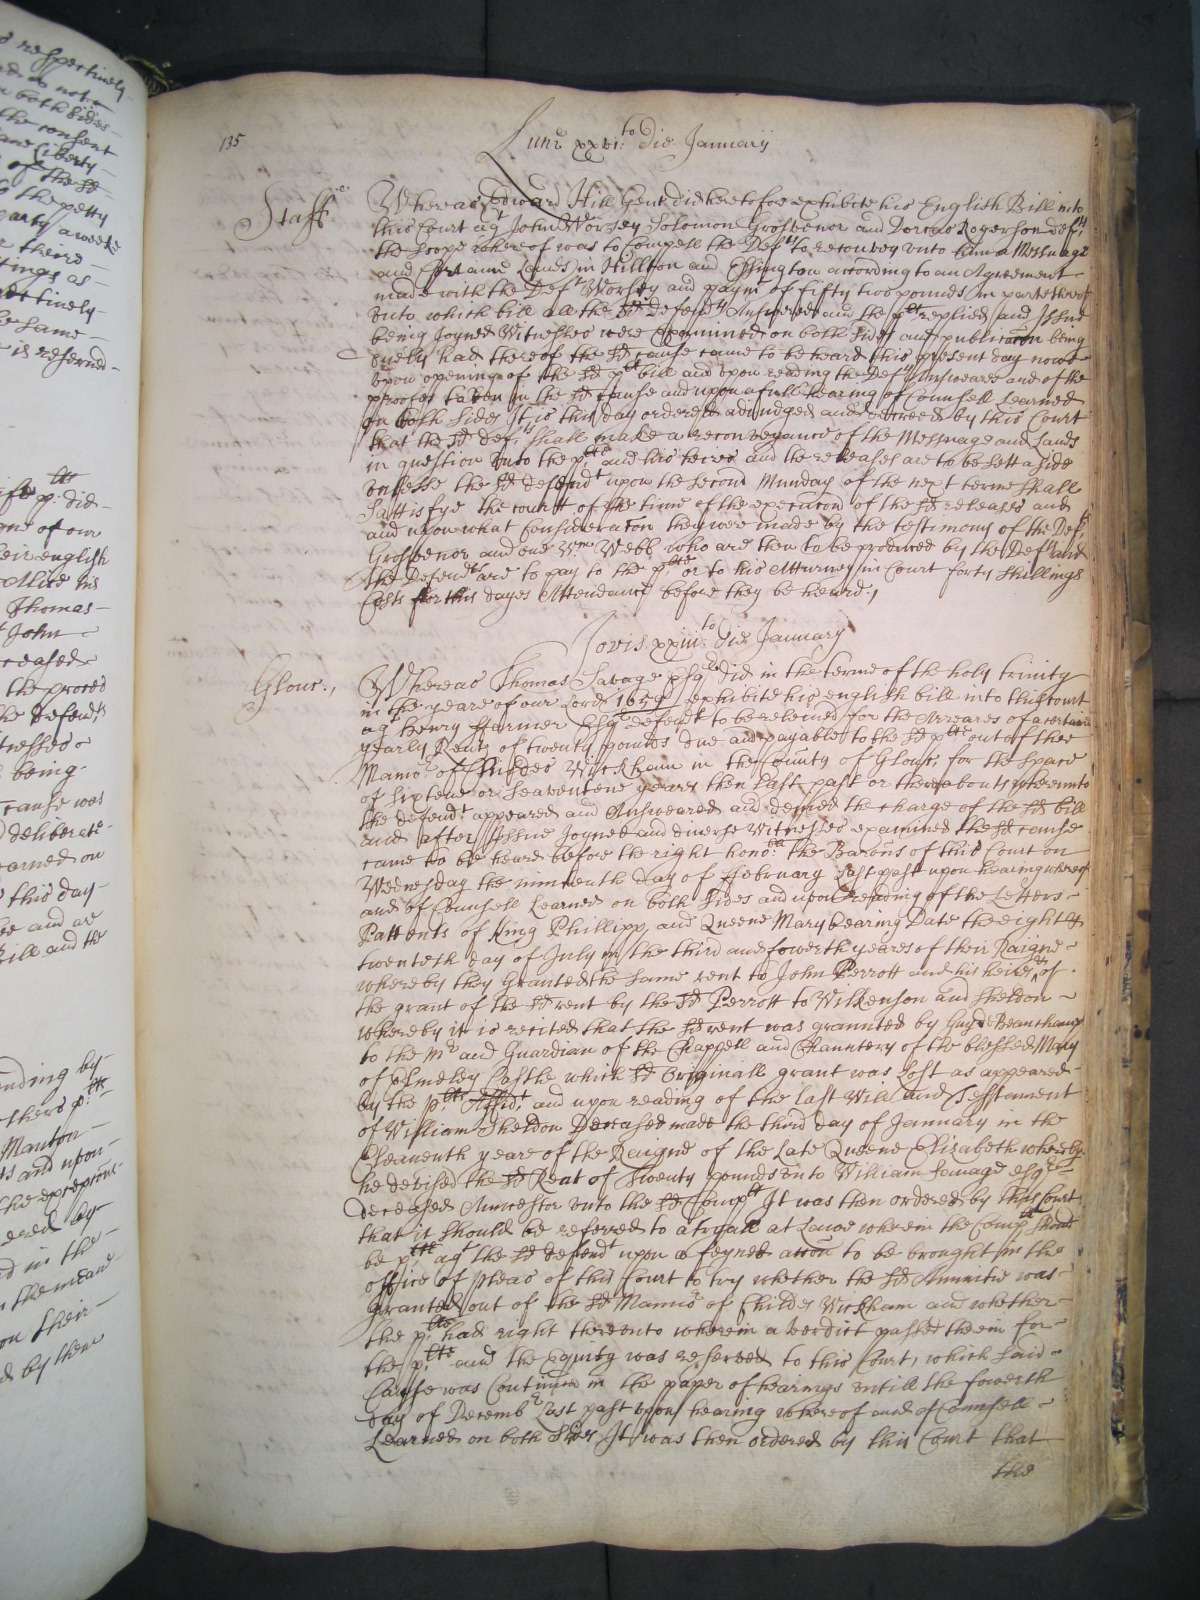 respectively
do not
both sides
the consent
same Liberty
of the sd
the petty
party a weeke
theire
tings as
ectively
same
is referred
plts
p: did
yne of our
eir english
Alice his
Thomas
John
ceased
the proces
the defendts
tnesses
being
cause was
deliberate
earned on
this day
ee and are
Bill and the
nding by
others plts
Manton
ts and upon
the exepcons
ered by
d in the
the meane
on their
d by them
135
Lune xxvi:to die January
Staff
Whereas Edward Hill Gent did heretofore exhibite his English Bill into
this Court agt John Worsey Solomon Grosvenor and Dorcas Rogerson defts
the scope whereof was to Compell the Defts to reconvey unto him a Messuage
and certaine Lands in Hillton and Essington according to an Agreement
made with the Deft Worsey and paymt of fifty two pounds in parte thereof
unto which bill all the sd defendts Answered and the plt replied and Issue
being Joyned Witnesses were Examined on both sides and publicacon being
duely had thereof the sd cause came to be heard this present day now
upon opening of the sd plts bill and upon reading the Defts Answeares and of the
proofes taken in the sd cause and upon a full hearing of Counsell Learned
on both sides It is this day ordered adjudged and decreed by this Court
that the sd defts shall make a reconveyance of the Messuage and Lands
in question unto the plt and his heires and the releases are to be sett aside
unlesse the sd defendt upon the second Munday of the next terme shall
sattisfye the court of the time of the execucon of the sd releases and
and upon what Consideracon they were made by the testimony of the Deft
Grosvenor and one Wm Webb who are then to be produced by the Defts and
the Defendts are to pay to the plt or to his Atturney in Court forty shillings
Costs for this dayes Attendance before they be heard,
Jovis xxiii:to die January
Glouc.,
Whereas Thomas Savage Esqr did in the terme of the holy trinity
in the yeare of our Lord 1659 exhibite his english bill into this court
agt Henry ffarmer Esqr defendt to be releived for the Arreares of a certaine
yearly Rent of twenty pounds due and payable to the sd plt out of the
Mannor of Childes Wickham in the County of Gloucr for the space
of sixteene or Seaventene yeares then last past or thereabouts whereunto
the defendt appeared and Answeared and denied the charge of the sd bill
and after Issue Joyned and diverse Witnesses examined the sd cause
came to be heard before the right honoble the Barons of this Court on
Wednesday the nineteenth day of ffebruary last past upon heaing whereof
and of Counsell Learned on both sides and upon reading of the Letters
Pattents of King Phillipp and Queene Mary bearing Date the eight &
twentieth day of July in the third and fowerth yeares of their Raigne
whereby they Granted the same rent to John Perrott and his heires & of
the grant of the sd rent by the sd Perrott to Wilkenson and Sheldon
whereby it is recited that the sd rent was graunted by Guy de Beauchamp
to the Mr and Guardian of the Chappell and Chauntery of the blessed Mary
of Elmeley Castle which sd Originall grant was Lost as appeared
by the plts Affidt and upon reading of the last Will and Testament
of William Sheldon Deceased made the third day of January in the
Eleaventh yeare of the Raigne of the Late Queene Elizabeth whereby
he devised the sd Rent of Twenty pounds unto William Savage esqr
deceased Auncestor unto the sd Complt It was then ordered by this Court
that it should be referred to a tryall at Lawe wherein the Complt should
be plt agt the sd defendt upon a feyned accon to be brought in the
office of pleas of this Court to try whether the sd Annuitie was
Granted out of the sd Mannor of Childes Wickham and whether
the plt had right thereunto wherein a verdict passed therein for
the plt and the Equity was reserved to this Court, which said
Cause was Continued in the paper of hearings untill the fowerth
day of Decembr Last past upon hearing whereof and of Counsell
Learned on both sides It was then ordered by this Court that
the